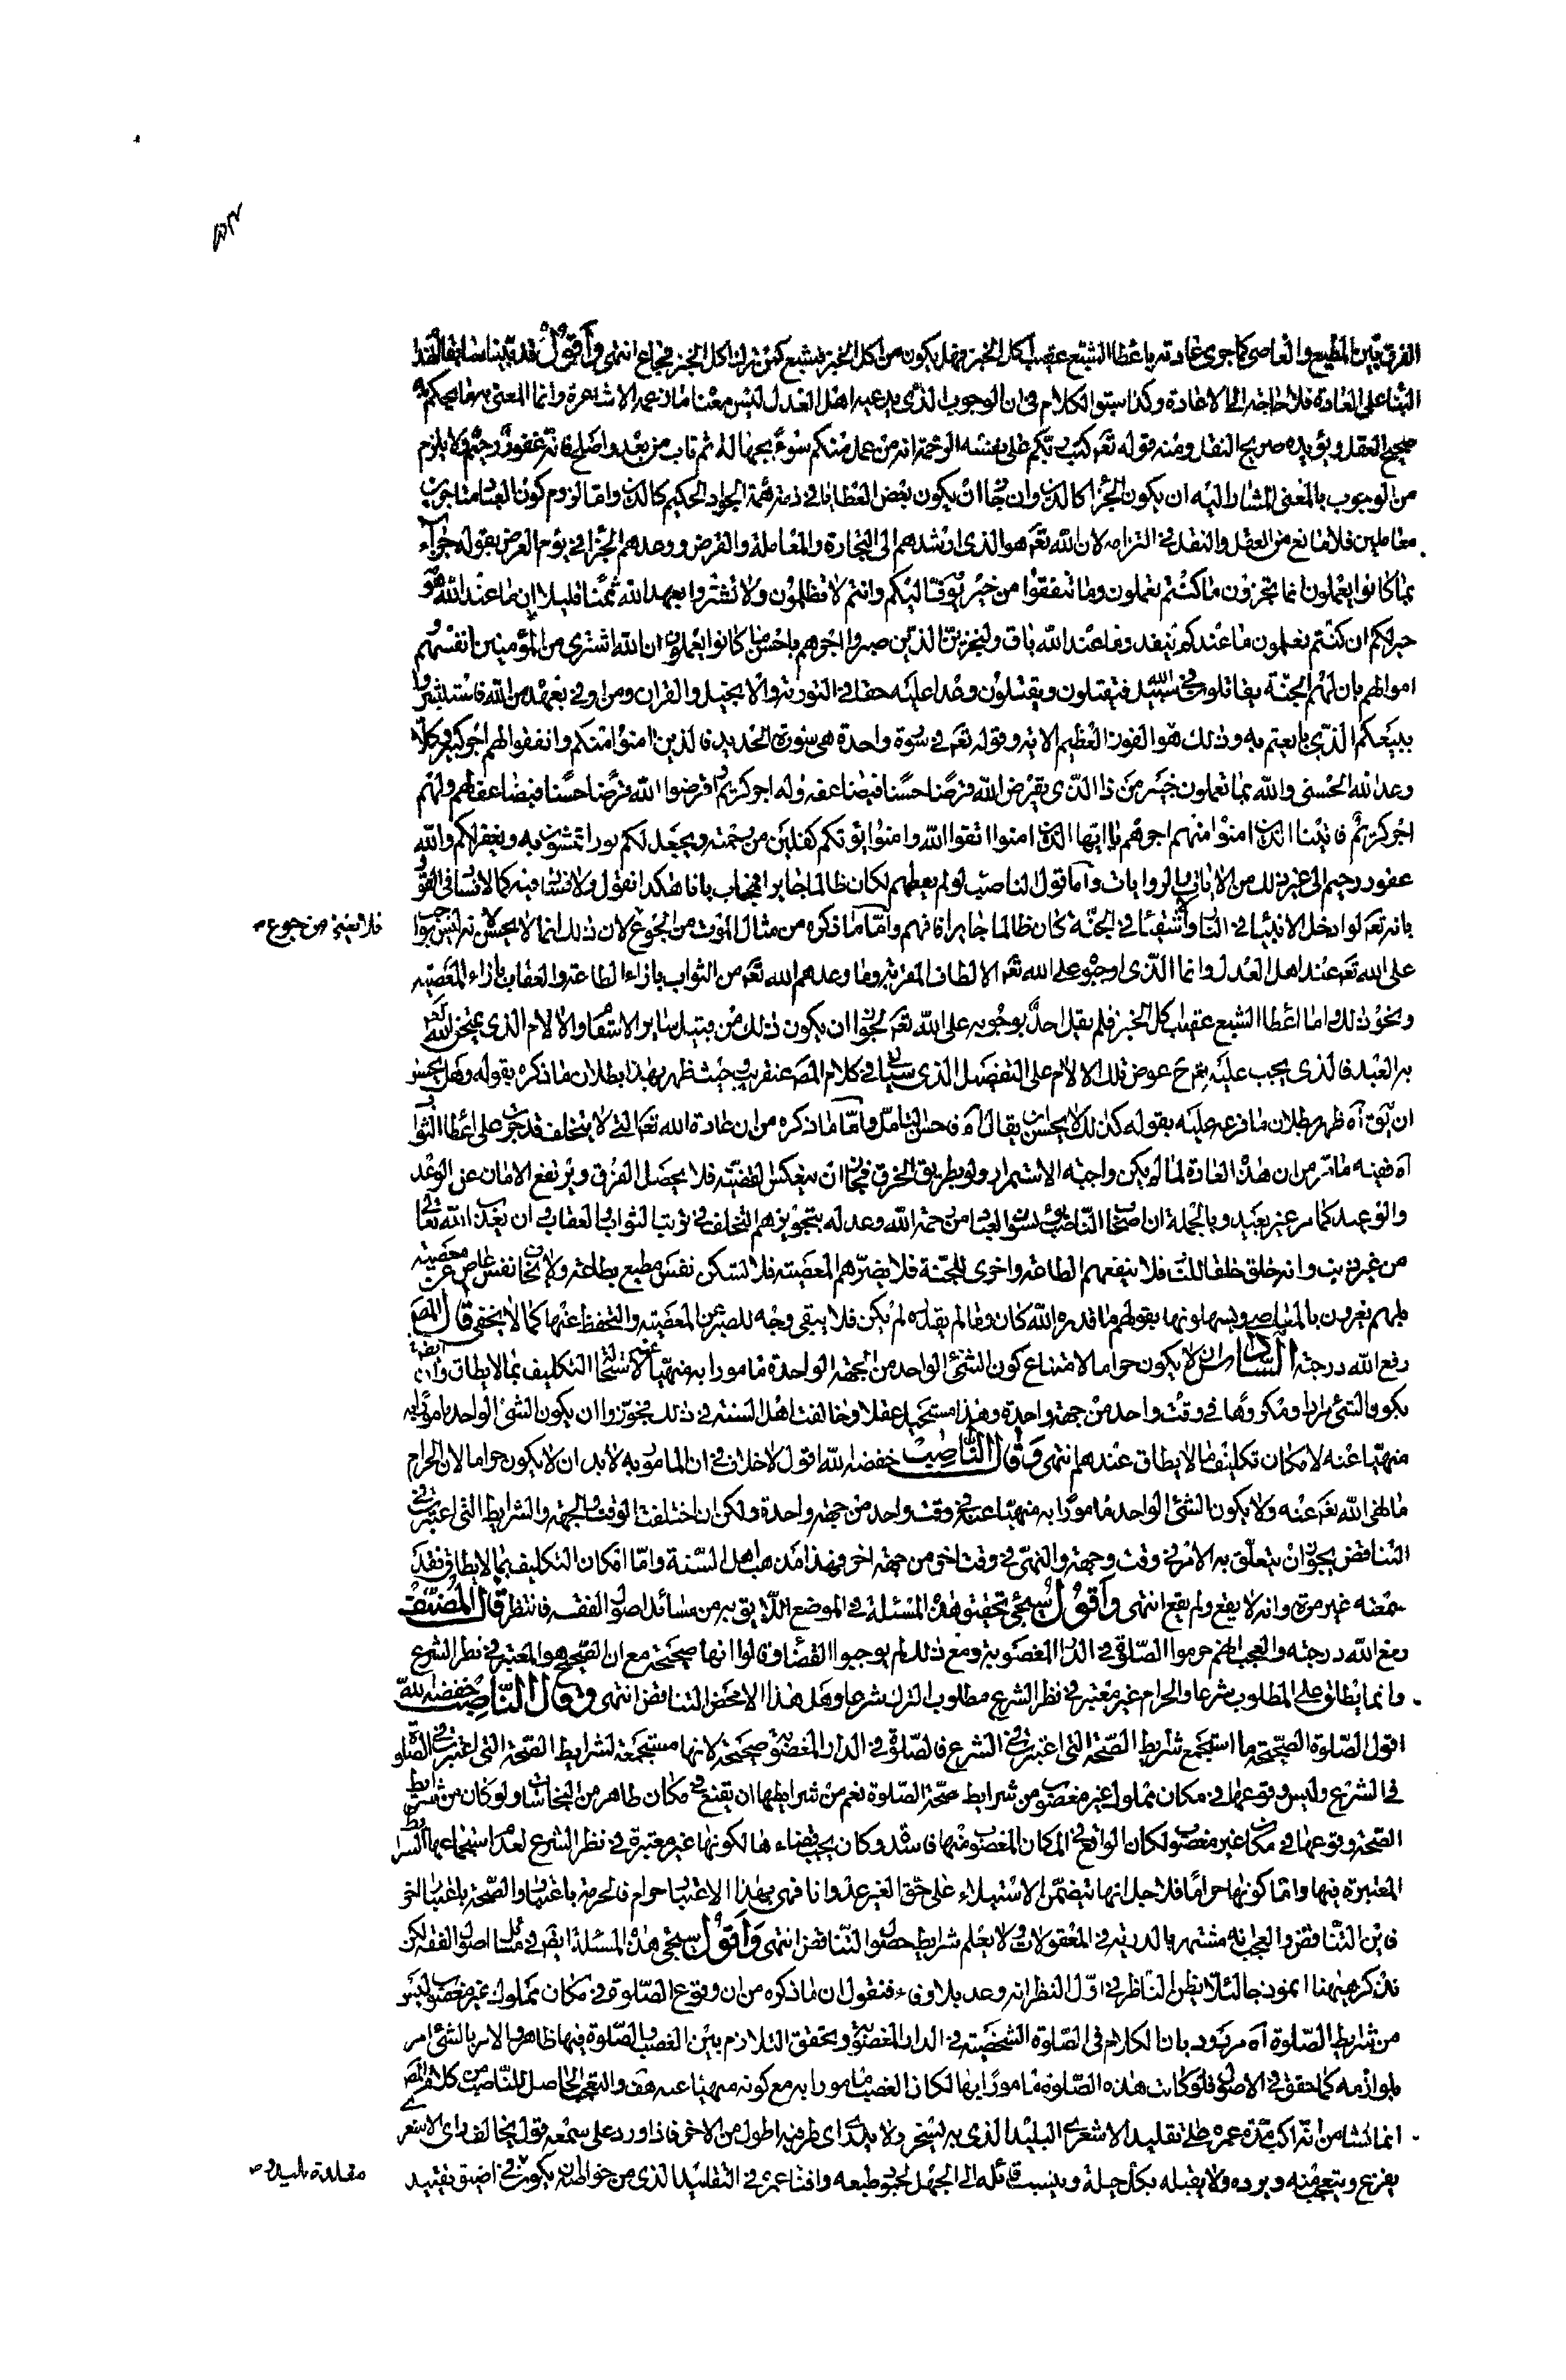 الفرق بين المطيع والعاصي كما جرى عادته باعطا الشبع عقيب اكل الخبز فهل يكون من اكل الخبز فشبع كمن ترك اكل الخبز فجاع انتهى واقول قد بينا سابقا
على العادة فلا حاجة الى الاعادة وكذا الكلام في ان الوجوب الذي يدعيه اهل العدل ليس معناه ما زعمه الاشاعرة وانما المعنى به ما يحكم به
صحيح العقل ويؤيده صريح النقل ومنه قوله تعم كتب ربكم على نفسه الرحمة انه من عمل منكم سوءً بجهالة ثم تاب من بعده واصلح فانه غفور رحيم ولا يلزم
من الوجوب بالمعنى المشار اليه ان يكون الجزا كالدين وان جاز ان يكون بعض العطايا في ذمة همة الجواد الحكيم كالدين واما لزوم كون العباد متاجرين
معاملين فلا مانع من العقل والنقل في التزامه لان الله تعم هو الذي ارشدهم الى التجارة والمعاملة والقرض ووعدهم الجزا في يوم العرض بقوله جزآء
بما كانوا يعملون انما تجزون ما كنتم تعملون وما تنفقوا من خير يوف اليكم وانتم لا تظلمون ولا تشتروا بعهد الله ثمنا قليلا ان ما عند الله هو
خير لكم ان كنتم تعلمون ما عندكم ينفد وما عند الله باق ولنجزين الذين صبروا اجرهم باحسن ما كانوا يعملون ان الله اشترى من المؤمنين انفسهم و
اموالهم بان لهم الجنة يقاتلون في سبيل الله فيقتلون ويقتلون وعدا عليه حقا في التورية والانجيل والقران ومن اوفى بعهده من الله فاستبشروا
ببيعكم الذي بايعتم به وذلك هو الفوز العظيم الاية وقوله تعم في سورة واحدة هي سورة الحديد فالذين امنوا منكم وانفقوا لهم اجر كبير وكلا
وعد الله الحسنى والله بما تعملون خبير من ذا الذي يقرض الله قرضا حسنا فيضاعفه وله اجر كريم اقرضوا الله قرضا حسنا فيضاعف لهم ولهم
اجر كريم فاتينا الذين امنوا منهم اجرهم يا ايها الذين امنوا اتقوا الله وامنوا يؤتكم كفلين من رحمته ويجعل لكم نورا تمشون به ويغفر لكم والله
غفور رحيم الى غير ذلك من الايات والروايات واما قول الناصب لو لم يعطهم لكان ظالما جايرا فجوابه بانا هكذا نقول ولا فيه كما لا في القول
بانه تعم لو ادخل الانبيا في النار والاشقيا في الجنة كان ظالما جايرا فافهم واما ما ذكره من مثال الموت من الجوع لان ذلك انما لا يحسن لانه ليس بواجب
على الله تعم عند اهل العدل وانما الذي اوجبوه على الله تعم الالطاف المقربة وما وعدهم الله تعم من الثواب بازاء الطاعة والعقاب بازاء المعصية
ونحو ذلك واما اعطا الشبع عقيب اكل الخبز فلم يقل احد بوجوبه على الله تعم لجواز ان يكون ذلك من قبيل ساير الاسقام والالام الذي يمتحن الله
به العبد فالذي يجب عليه تعم ح عوض تلك الالام على التفضل الذي سياتي في كلام المصـ عنقريب حيث ظهر بهذا بطلان ما ذكره بقوله وهل يحسن
ان يق آه ظهر بطلان ما فرعه عليه بقوله كذلك لا يحسن ان يقال آه فاحسن التامل واما ما ذكره من ان عادة الله تعم التي لا يتخلف قد جرى على اعطا الثواب
آه ففيه ما مر من ان هذه العادة لما لم يكن واجبة الاستمرار ولو بطريق الخرق فيجوز ان ينعكس القضية فلا يحصل الفرق ويرتفع الامان عن الوعد
والوعيد كما مر غير بعيد وبالجملة ان اصحاب الناصب العباد من رحمة الله وعدله بتجويزهم التخلف في ترتيب الثواب والعقاب وان يعذب الله تعالى
من غير ذنب وانه خلق خلقا للنار فلا ينفعهم الطاعة واخرى للجنة فلا يضرهم المعصية فلا تسكن نفس مطيع بطاعته ولا يخاف نفس عاص عن معصيته
بل هم يغرون بالمعاصي ويسهلونها بقولهم ما قدره الله كان وما لم يقدره لم يكن فلا يبقى وجه للصبر عن المعصية والتحفظ عنها كما لا يخفى قال المصـ
رفع الله درجته السادس ان لا يكون حراما لامتناع كون الشئ الواحد من الجهة الواحدة مامورا به منهيا عنه لاستحالة التكليف بما لا يطاق وايضا
يكون الشئ مرادا ومكروها في وقت واحد من جهة واحدة وهذا مستحيل عقلا وخالفت اهل السنة في ذلك فجوزوا ان يكون الشئ الواحد مامورا به
منهيا عنه لامكان تكليف ما لا يطاق عندهم انتهى وقال الناصب خفضه الله اقول لا خلاف في ان المامور به لا بد ان لا يكون حراما لان الحرام
ما نهى الله تعم عنه ولا يكون الشئ الواحد مامورا به منهيا عنه في وقت واحد من جهة واحدة ولكن ان اختلفت الوقت والجهة والشرايط التي اعتبرت في
التناقض يجوز ان يتعلق به الامر في وقت وجهة والنهي في وقت اخر من جهة اخرى فهذا مذهب اهل السنة واما امكان التكليف بما لا يطاق فقد
سمعته غير مرة وانه لا يقع ولم يقع انتهى واقول سيجئ تحقيق هذه المسئلة في الموضع اللايق به من مسائل اصول الفقه فانتظر قال المصنف
رفع الله درجته والعجب انهم حرموا الصلوة في الدار المغصوبة ومع ذلك لم يوجبوا القضاء وقالوا انها صحيحة مع ان الصحيح هو المعتبر في نظر الشرع
وانما يطلق على المطلوب شرعا والحرام غير معتبر في نظر الشرع مطلوب الترك شرعا وهل هذا الا محض التناقض انتهى وقال الناصب خفضه الله
اقول الصلوة الصحيحة ما استجمع شرايط الصحة التي اعتبرت في الشرع فالصلوة في الدار المغصوبة صحيحة لانها مستجمعة لشرايط الصحة التي اعتبرت في الصلوة
في الشرع وليس وقوعها في مكان مملوك غير مغصوب من شرايط صحة الصلوة نعم من شرايطها ان يقع في مكان طاهر من النجاسات ولو كان من شرايط
الصحة وقوعها في مكان غير مغصوب لكان الواقع في المكان المغصوب منها فاسدة وكان يجب قضاءها لكونها غير معتبرة في نظر الشرع لعدم استجماعها الشرايط
المعتبرة فيها واما كونها حراما فلاجل انها تتضمن الاستيلاء على حق الغير عدوانا فهي بهذا الاعتبار حرام فالحرمة باعتبار والصحة باعتبار اخر
فاين التناقض والعجب انه مشتهر بالدربة في المعقولات ولا يعلم شرايط حصول التناقض انتهى واقول سيجئ هذه المسئلة ايضا في مسائل اصول الفقه لكن
نذكر هيهنا انموذجا لئلا يظن الناظر في اول النظر انه وعد بلا وفاء فنقول ان ما ذكره من ان وقوع الصلوة في مكان مملوك غير مغصوب ليس
من شرايط الصلوة آه مردود بان الكلام في الصلوة الشخصية في الدار المغصوبة وتحقق التلازم بين الغصب والصلوة فيها ظاهر والامر بالشئ امر
بلوازمه كما حقق في الاصول فلو كانت هذه الصلوة مامورا بها لكان الغصب مامورا به مع كونه منهيا عنه هف والتعجب الحاصل للناصب من كلام المصـ
انما نشا من انه اكب مدة عمره على تقليد الاشعري البليد الذي به يسخر ولا يدرى اى طرفيه اطول من الاخر فاذا ورد على سمعه قول يخالف راى الاشعري
يفزع ويتعجب منه ويرده ولا يقبله بكل حيلة وينسب قائله الى الجهل لجمود طبعه وافناء عمره في التقليد الذي من خواصه ان يكون في اضيق تقييد